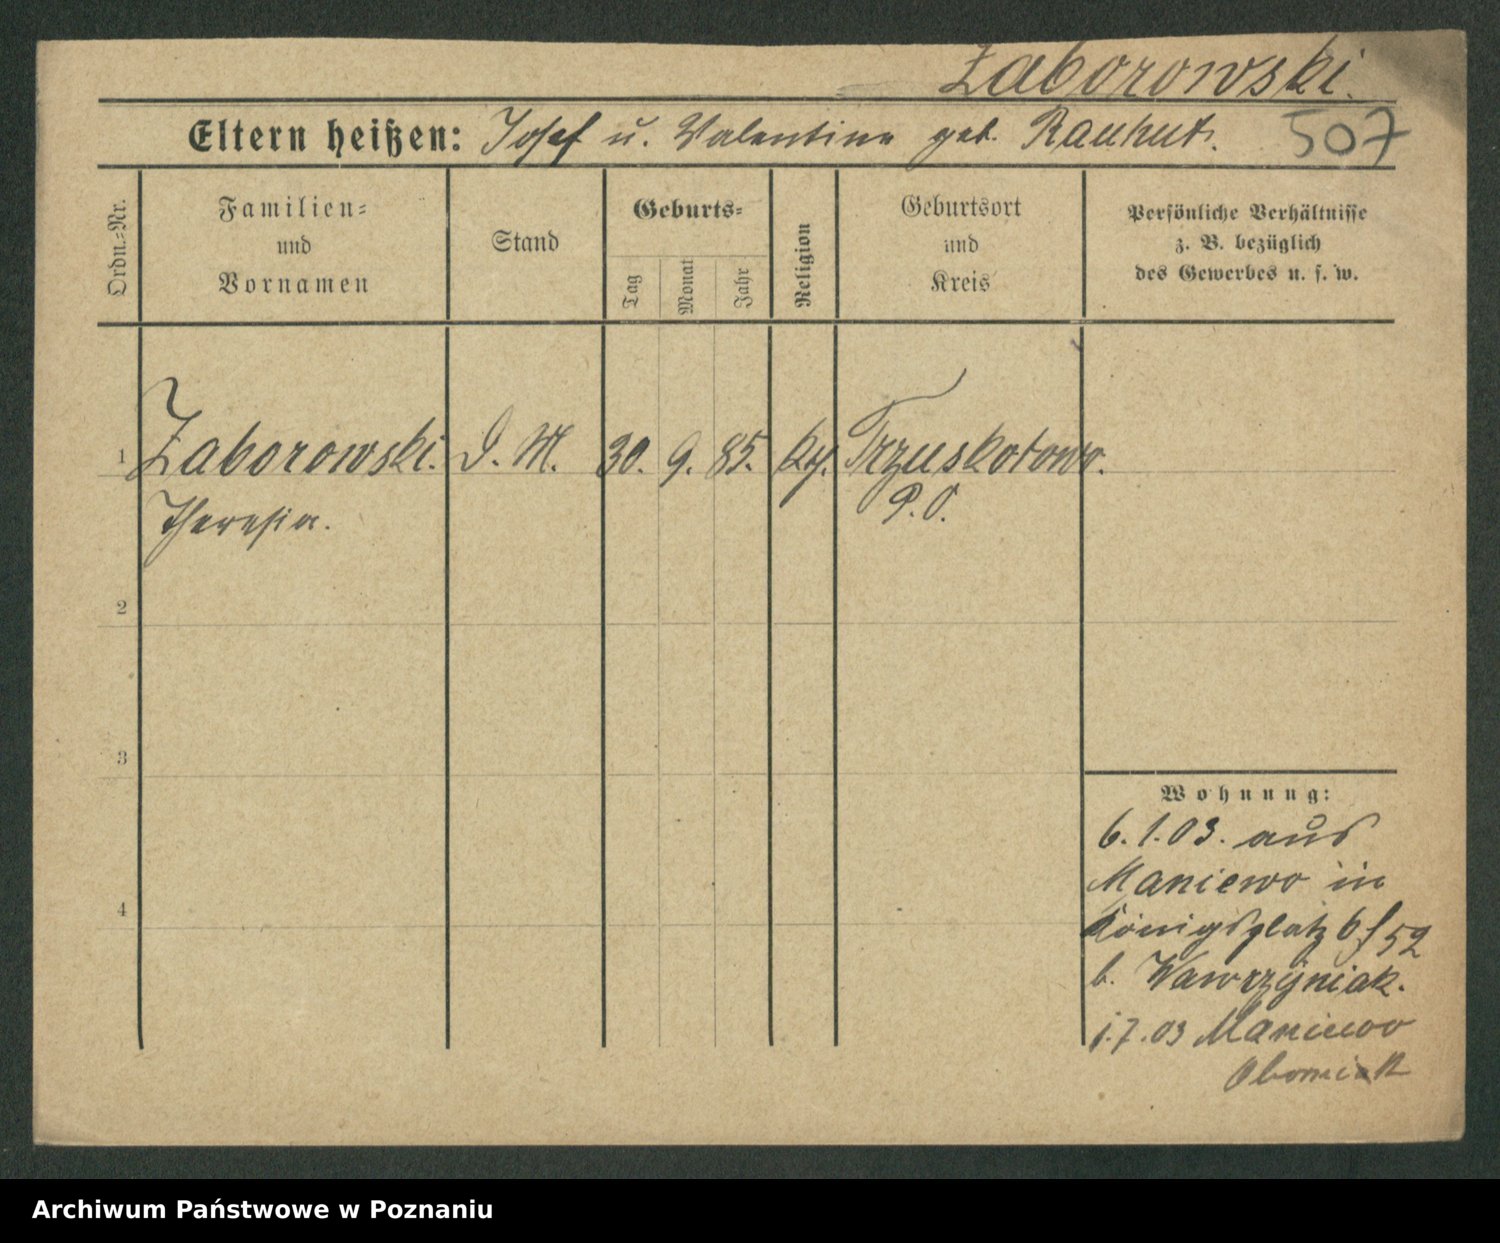 Zaborowski.
Eltern heißen: Josef u. Valentine geb. Rauhut. 507
Ordn.-Nr.
Familien-
und
Vornamen
Stand
Geburts-
Tag
Monat
Jahr
Religion
Geburtsort
und
Kreis
Persönliche Verhältnisse
z. B. bezüglich
des Gewerbes u. s. w.
1 Zaborowski. D. M. 30. 9. 85. Trzuskotowo.
Theresia. P. O.
2
3
4
Wohnung:
6. 1. 03. aus
Maniewo in
Königsplatz 6 f 52
b. Wawrzyniak.
1. 7. 03 Maniewo
Archiwum Państwowe w Poznaniu